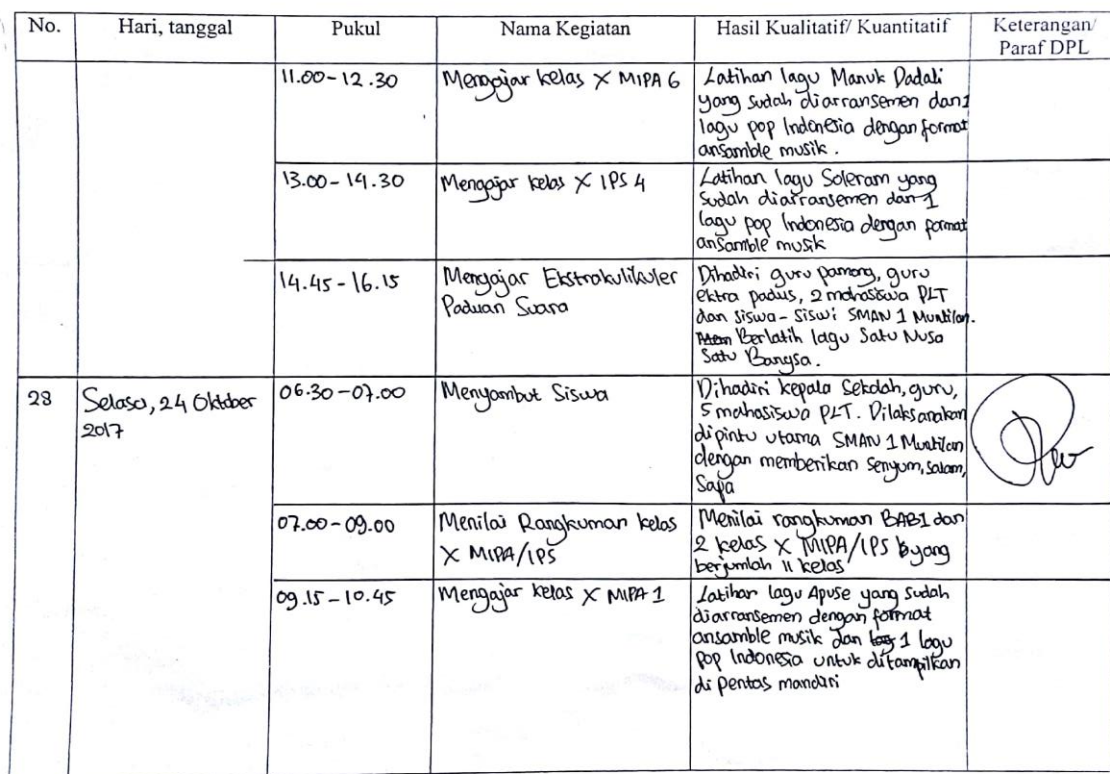 No. Hari, tanggal Pukul Nama Kegiatan Hasil Kualitatif/ Kuantitatif Keterangan/
Paraf DPL
11.00 - 12.30 Mengajar kelas X MIPA 6 Latihan lagu Manuk Dadali
yang sudah diarransemen dan 1
lagu pop Indonesia dengan format
ansamble musik.
13.00 - 14.30 Mengajar kelas X IPS 4 Latihan lagu Soleram yang
sudah diarransemen dan 1
lagu pop Indonesia dengan format
ansamble musik
14.45 - 16.15 Mengajar Ekstrakulikuler Dihadiri guru pamong, guru
Paduan Suara ektra padus, 2 mahasiswa PLT
dan siswa - siswi SMAN 1 Muntilan.
Berlatih lagu Satu Nusa
Satu Bangsa.
28 Selasa, 24 Oktober 06.30 - 07.00 Menyambut Siswa Dihadiri kepala Sekolah, guru,
2017 5 mahasiswa PLT. Dilaksanakan
dipintu utama SMAN 1 Muntilan
dengan memberikan Senyum, Salam,
Sapa
07.00 - 09.00 Menilai Rangkuman kelas Menilai rangkuman BAB1 dan
X MIPA/IPS 2 kelas X MIPA/IPS yang
berjumlah 11 kelas
09.15 - 10.45 Mengajar kelas X MIPA 1 Latihan lagu Apuse yang sudah
diarransemen dengan format
ansamble musik dan 1 lagu
pop Indonesia untuk ditampilkan
di pentas mandiri